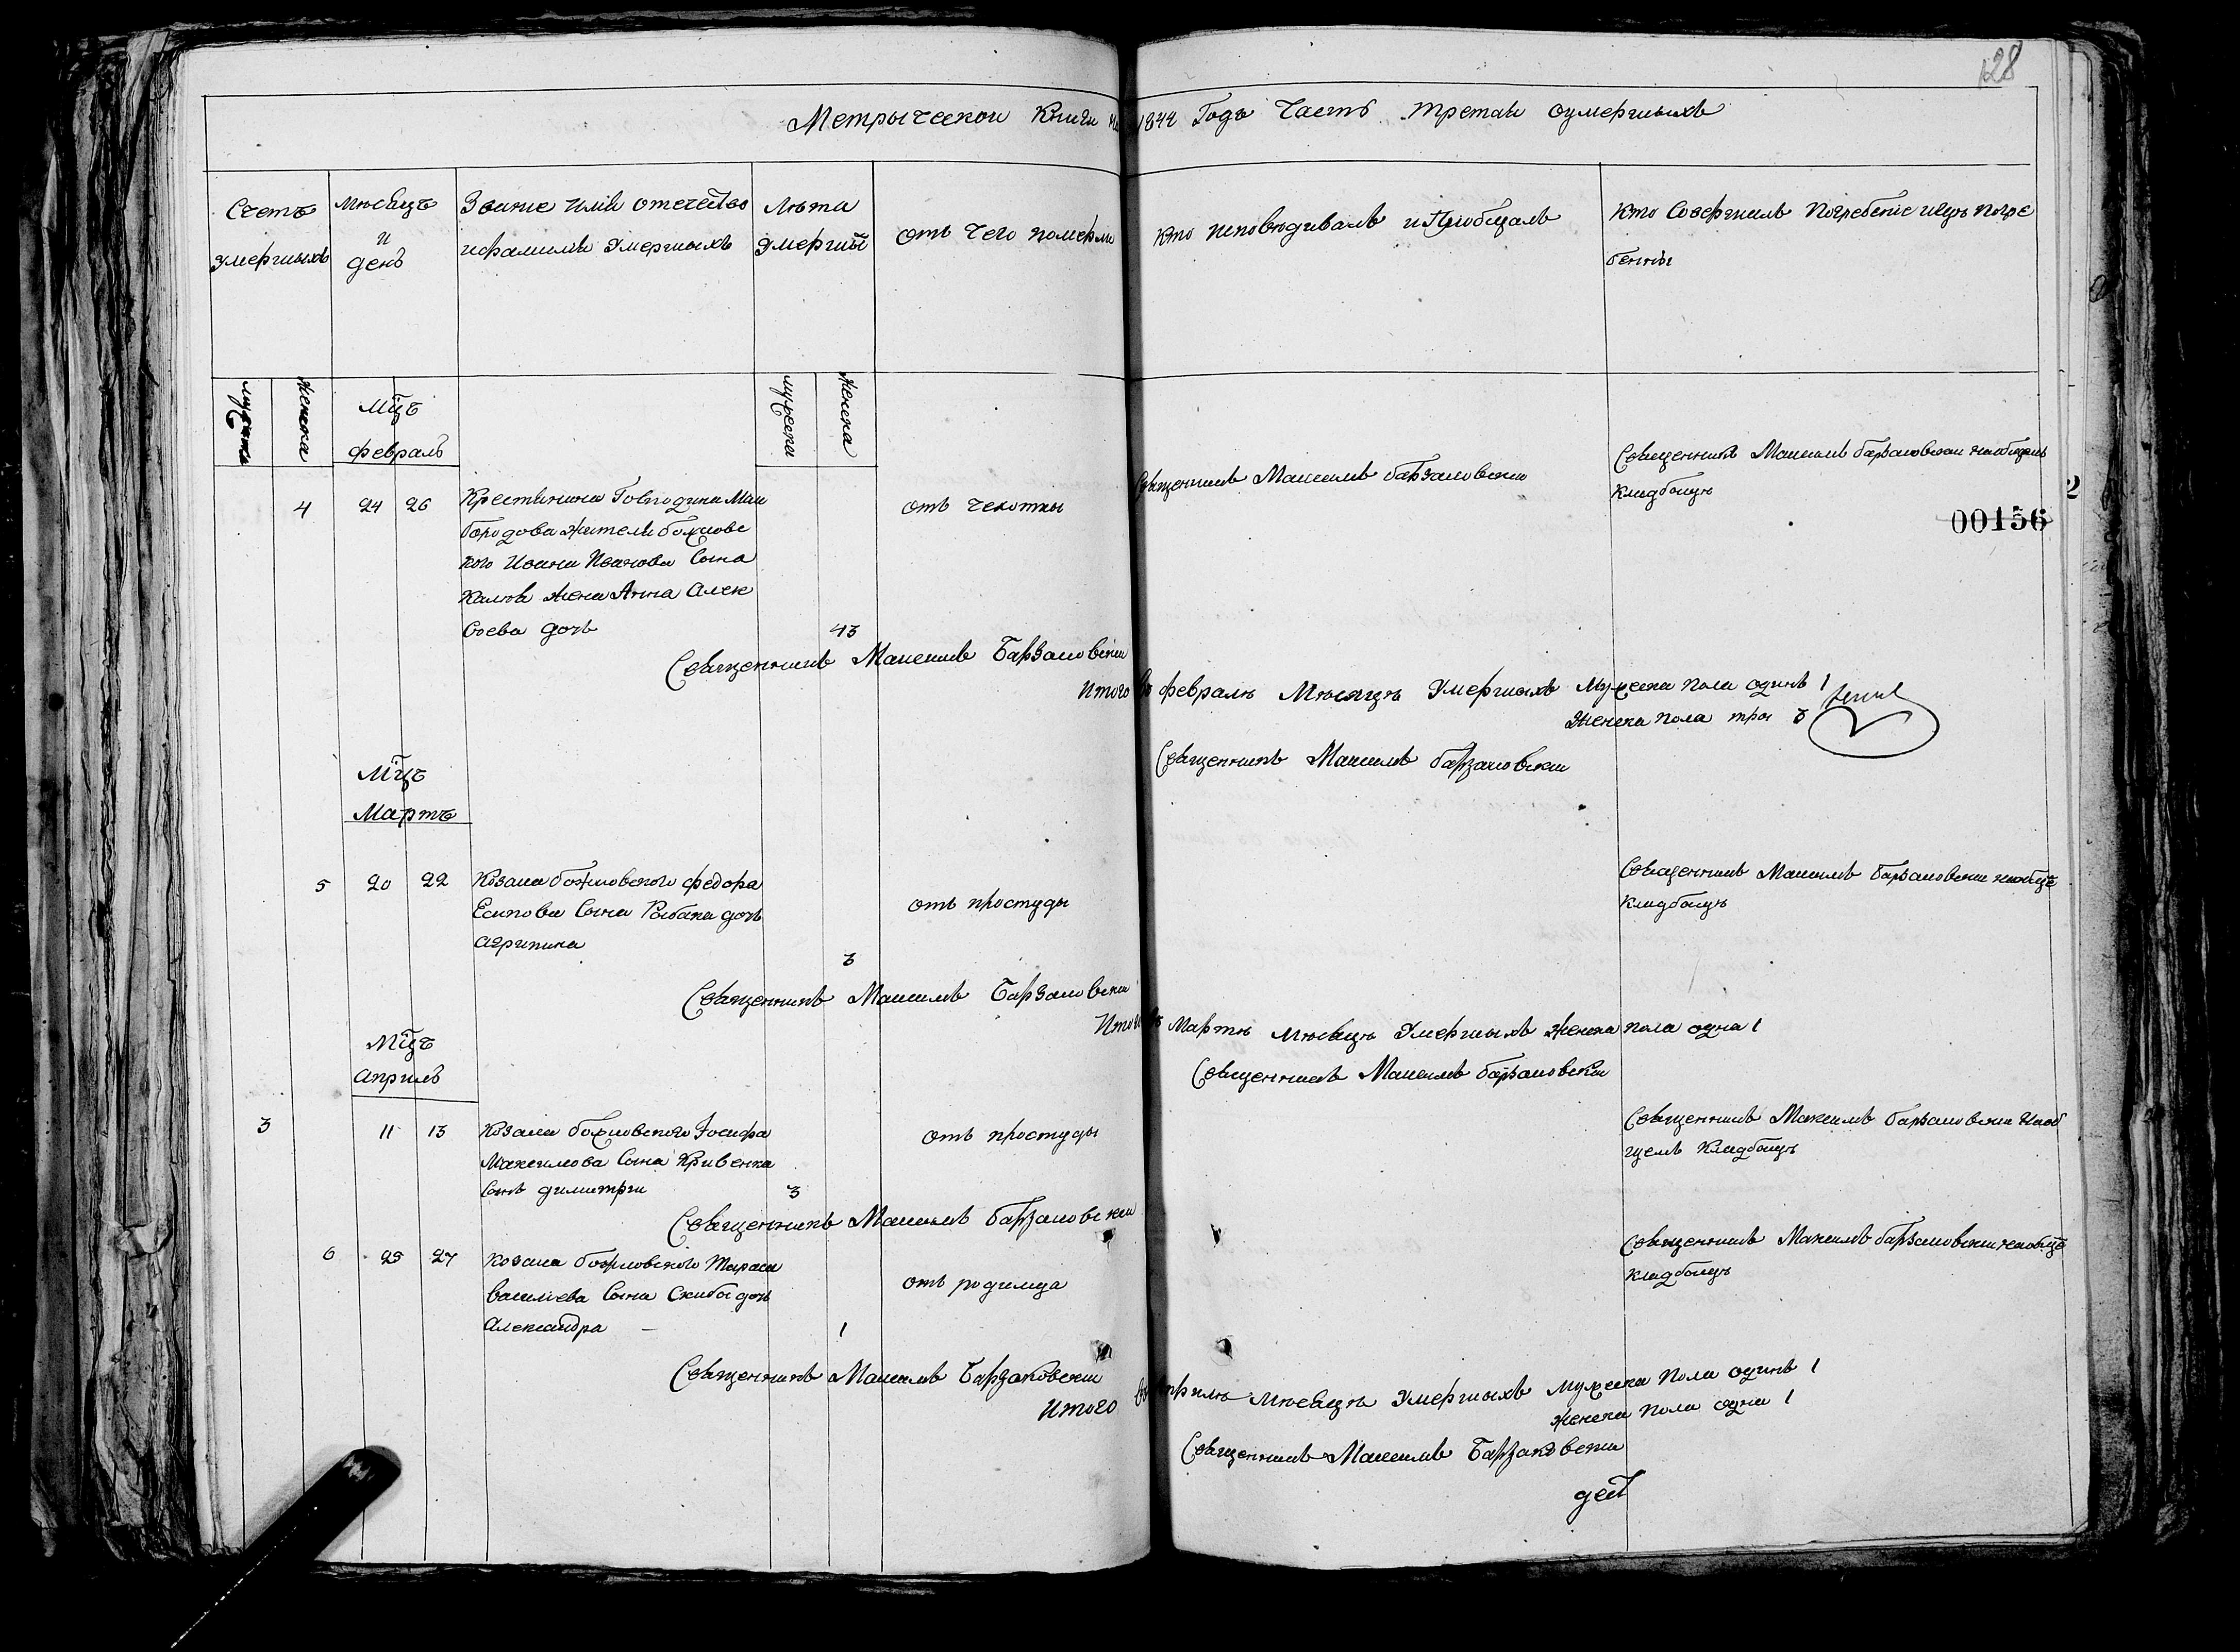 128
Метрической Книги на 1844 Годъ Часть третаи оумершыхъ
Счетъ умершыхъ
Мѣсяцъ и день
Звание или отечество
ифамилія Умершыхъ
Лѣта Умершы
отъ Чего померли
кто исповѣдивалъ и Приобщалъ
Кто Совершилъ Погребеніе игдѣ погре
бенны
мужеска
женска
Мцъ
февраль
мужеска
женска
4 24 26
Крестянина Господина Мяи
бородова жителя божковс
кого Ивана Иванова Сына
жена Анна Алек
сеева дочь
43
отъ чехотки
Священникъ Максимъ барзаковски
Священникъ Максимъ барзаковски наобщемъ
кладбищѣ
00156
Священникъ Максимъ Барзаковски
Итого въ февралѣ Мѣсяцѣ Умершыхъ Мужеска пола одинъ 1
Женска пола три 3
Священникъ Максимъ барзаковски
Мцъ
Мартъ
5 20 22
Козака божковского федора
Есипова Сына Рыбака дочь
агрипина
3
отъ простуды
Священникъ Максимъ барзаковски наобще
кладбищѣ
Священникъ Максимъ Барзаковски
Итого въ Мартѣ мѣсяцѣ Умершыхъ женска пола одна 1
Священникъ Максимъ барзаковски
Мцъ
априль
3 11 13
Козака божковского Іосифа
Максимова Сына Кривенка
Сынъ димитри
3
отъ простуды
Священникъ Максимъ барзаковски Нaоб
щемъ Кладбищѣ
Священникъ Максимъ барзаковски
6 25 27
Козака божковского Тараса
василіева Сына Скибы дочь
Александра
1
отъ родимца
Священникъ Максимъ барзаковски наобще
кладбищѣ
Священникъ Максимъ Барзаковски
Итого въ априлѣ Мѣсяцѣ Умершыхъ Мужеска Пола одинъ 1
женска Пола одна 1
Священникъ Максимъ Барзаковски